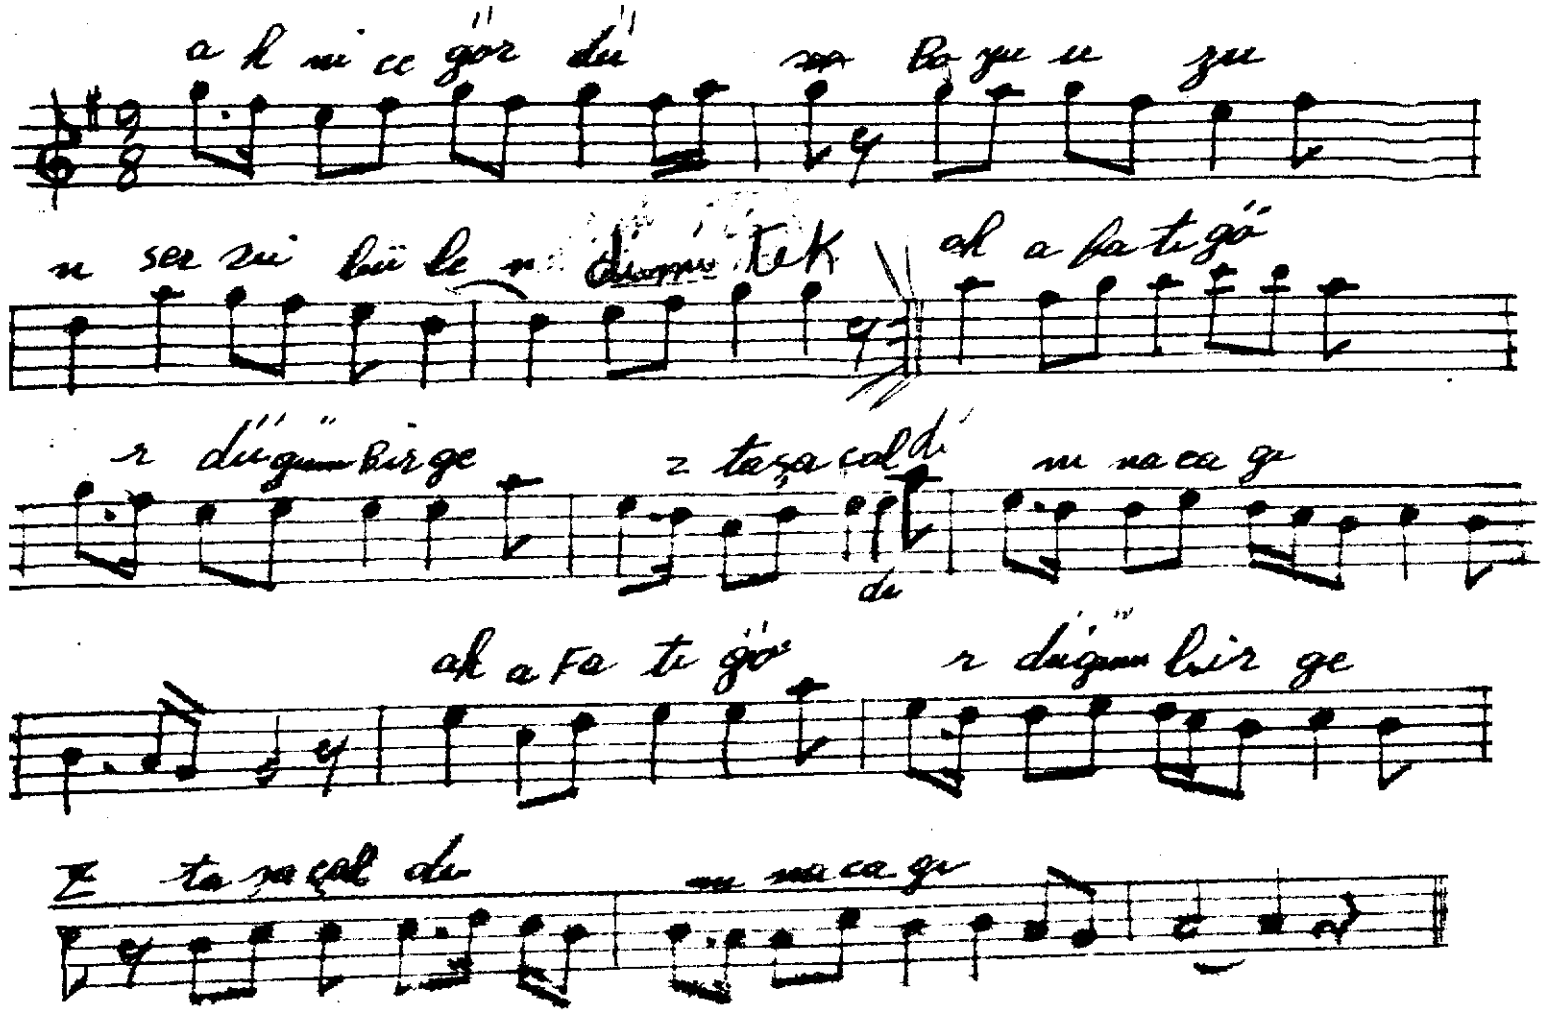 a h ni ce gör dü Bo yu u zu
n ser vii bü le n dümü tek ah a fa tı gö
r düğüm Bir ge z taşa çal dı m na ca gı
dı
ah a Fa tı gö r düğüm bir ge
Z ta şa çal dı m na ca gı